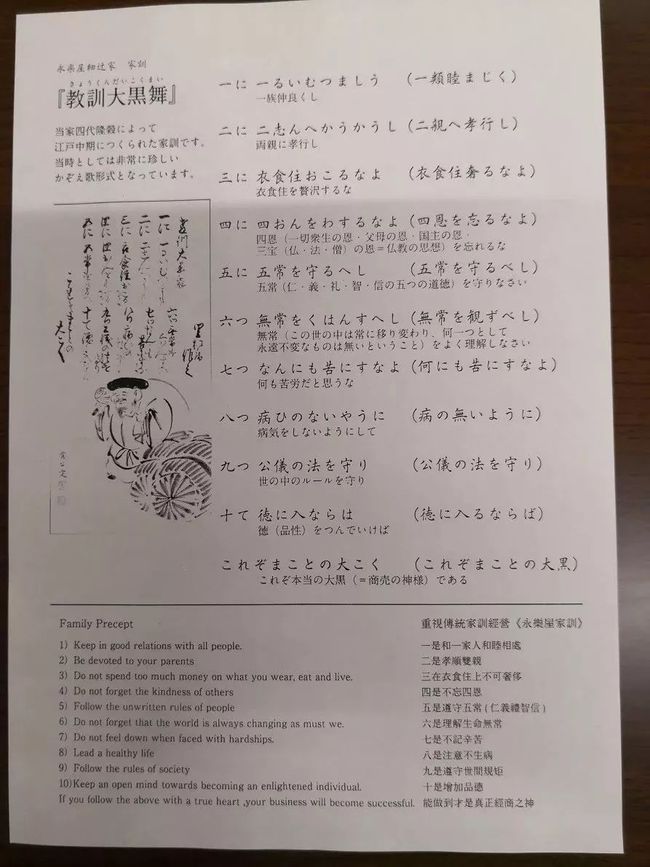 永楽屋細辻家　家訓
きょうくんだいこくまい
『教訓大黒舞』
当家四代隆毅によって
江戸中期につくられた家訓です。
当時としては非常に珍しい
かぞえ歌形式となっています。
一に 一るいむつましう （一類睦まじく）
一族仲良くし
二に 二志んへかうかうし （二親へ孝行し）
両親に孝行し
三に 衣食住おこるなよ （衣食住奢るなよ）
衣食住を贅沢するな
四に 四おんをわするなよ （四恩を忘るなよ）
四恩（一切衆生の恩・父母の恩・国主の恩・
三宝（仏・法・僧）の恩＝仏教の思想）を忘れるな
五に 五常を守るへし （五常を守るべし）
五常（仁・義・礼・智・信の五つの道徳）を守りなさい
六つ 無常をくはんすへし （無常を観ずべし）
無常（この世の中は常に移り変わり、何一つとして
永遠不変なものは無いということ）をよく理解しなさい
七つ なんにも苦にすなよ （何にも苦にすなよ）
何も苦労だと思うな
八つ 病ひのないやうに （病の無いように）
病気をしないようにして
九つ 公儀の法を守り （公儀の法を守り）
世の中のルールを守り
十て 徳に入ならは （徳に入るならば）
徳（品性）をつんでいけば
これぞまことの大こく （これぞまことの大黒）
これぞ本当の大黒（＝商売の神様）である
Family Precept
1) Keep in good relations with all people.
2) Be devoted to your parents
3) Do not spend too much money on what you wear, eat and live.
4) Do not forget the kindness of others
5) Follow the unwritten rules of people
6) Do not forget that the world is always changing as must we.
7) Do not feel down when faced with hardships.
8) Lead a healthy life
9) Follow the rules of society
10)Keep an open mind towards becoming an enlightened individual.
If you follow the above with a true heart ,your business will become successful.
重視傳統家訓經營《永樂屋家訓》
一是和一家人和睦相處
二是孝順雙親
三在衣食住上不可奢侈
四是不忘四恩
五是遵守五常(仁義禮智信)
六是理解生命無常
七是不記辛苦
八是注意不生病
九是遵守世間規矩
十是增加品德
能做到才是真正經商之神